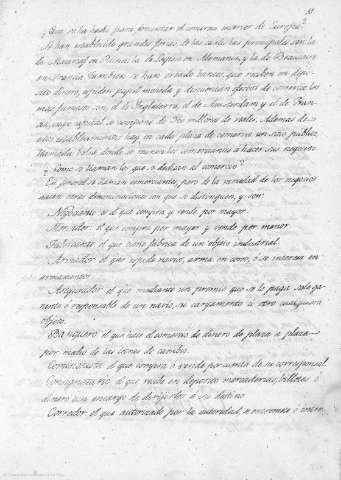 ¿Que se ha hecho para fomentar el comercio interior de Europa?
Se han establecido grandes ferias, de las cuales las principales son la
de en la de Leipsic en Alemania, y la de Beaucaire
en Francia. Tambien se han creado bancos, que reciben en depo-
sito dinero, espiden papel moneda y descuentan efectos de comercio: los
mas famosos son, el de Inglaterra, el de Amsterdam y el de Fran-
cia, cuyo capital se compone de millones de reales. Ademas de
estos establecimientos hay en cada plaza de comercio un sitio publico
llamado bolsa, donde se reunen los comerciantes á hacer sus negocios
¿Como se llaman los que se dedican al comercio?
En general se llaman comerciantes, pero de la variedad de los negocios
nacen otras denominaciones con que se distinguen, y son:
Negociante el que compra y vende por mayor
Mercader el que compra por mayor y vende por menor
Fabricante el que tiene fabrica de un objeto industrial.
Armador el que espide navios, arma en corso, ó se interesa en
armamentos
Asegurador el que mediante un premio que se le paga sale ga-
rante ó responsable de un navio, su cargamento ú otro cualquiera
objeto.
Banquero el que hace el comercio de dinero de plaza a plaza
por medio de las letras de cambio.
Comisionista el que compra ó vende por cuenta de su corresponsal
Consignatario el que recibe en deposito mercaderias, billetes ó
dinero con encargo de dirigirlos a su destino
Corredor el que autorizado por la autoridad, interviene ó